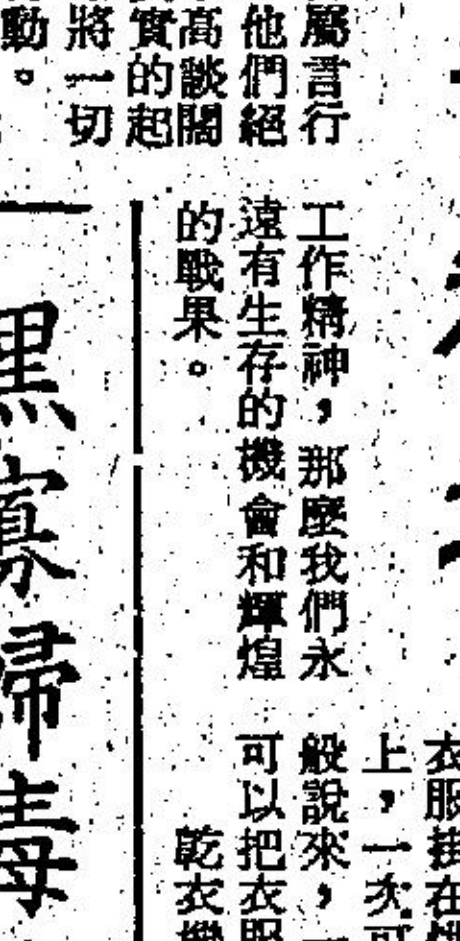 屬言行
他們絕
高談闊
實的起
將一切
動。
工作精神，那麼我們永
遠有生存的機會和輝煌
的戰果。
衣服掛在
上，一次可
般說來，
可以把衣服
乾衣機
黑寡婦毒